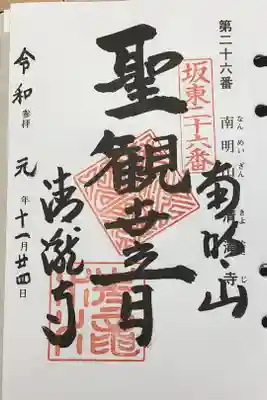 第二十六番
南明山 清瀧寺
なんめいざん きよたきじ
坂東二十六番
南明山
聖観世音
清瀧寺
令和元年十一月廿四日
参拝